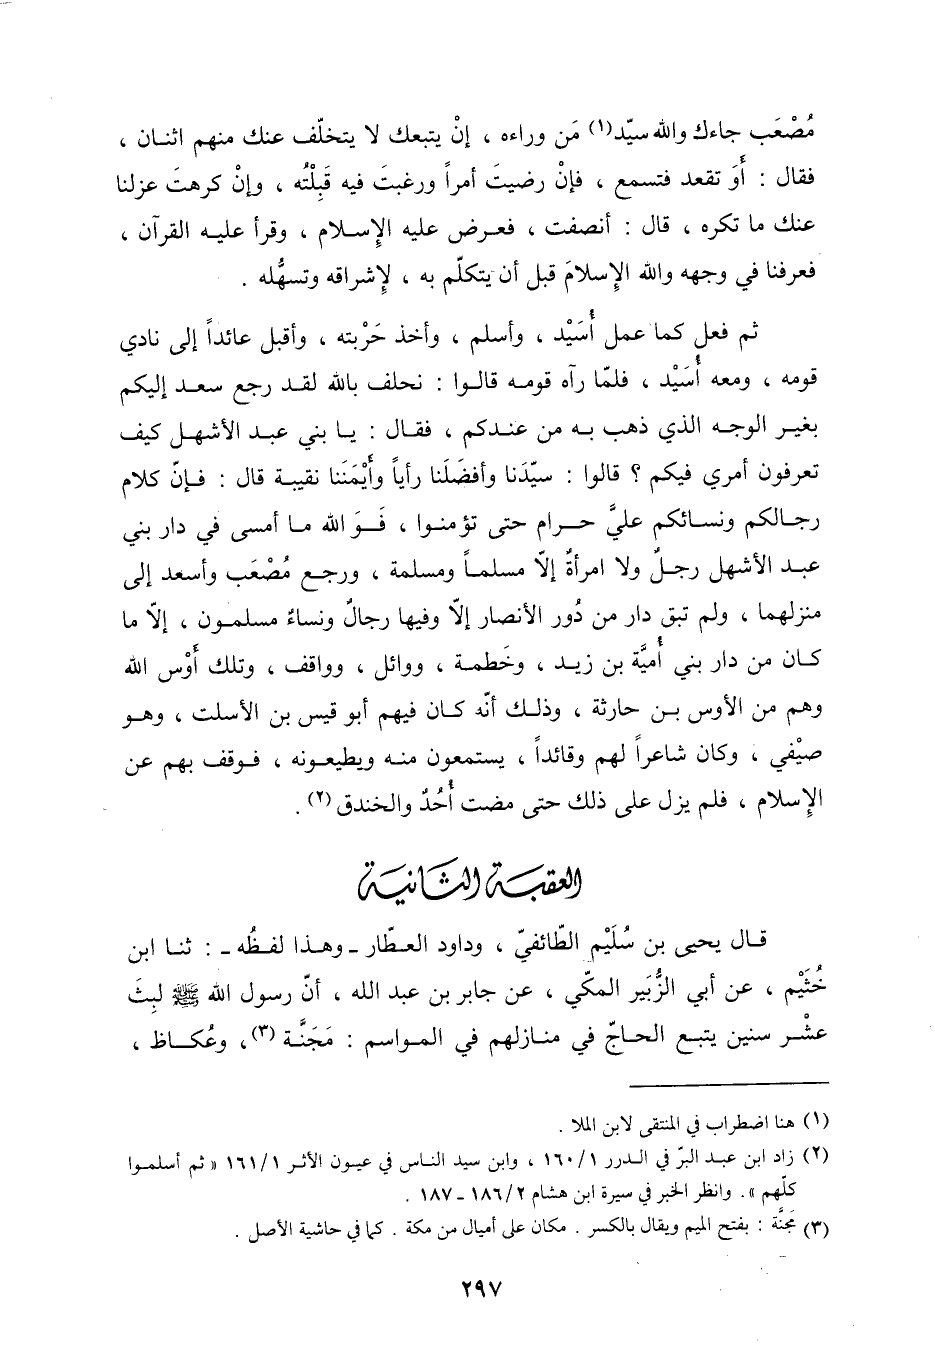 مُصْعَب جاءك والله سيّد(١) مَن وراءه ، إنْ يتبعك لا يتخلّف عنك منهم اثنان ،
فقال : أَوَ تقعد فتسمع ، فإنْ رضيتَ أمراً ورغبتَ فيه قَبِلْتُه ، وإنْ كرهتَ عزلنا
عنك ما تكره ، قال : أنصفت ، فعرض عليه الإِسلام ، وقرأ عليه القرآن ،
فعرفنا في وجهه والله الإِسلامَ قبل أن يتكلّم به ، لإِشراقه وتسهُّله .
ثم فعل كما عمل أُسَيْد ، وأسلم ، وأخذ حَرْبته ، وأقبل عائداً إلى نادي
قومه ، ومعه أُسَيْد ، فلمّا رآه قومه قالوا : نحلف بالله لقد رجع سعد إليكم
بغير الوجه الذي ذهب به من عندكم ، فقال : يا بني عبد الأشهل كيف
تعرفون أمري فيكم ؟ قالوا : سيّدَنا وأفضَلَنا رأياً وأَيْمَنَنا نقيبة قال : فإنّ كلام
رجالكم ونسائكم عليَّ حرام حتى تؤمنوا ، فَوَ الله ما أمسى في دار بني
عبد الأشهل رجلٌ ولا امرأةٌ إلّا مسلماً ومسلمة ، ورجع مُصْعَب وأسعد إلى
منزلهما ، ولم تبق دار من دُور الأنصار إلّا وفيها رجالٌ ونساءٌ مسلمون ، إلّا ما
كان من دار بني أُميَّة بن زيد ، وخَطمة ، ووائل ، وواقف ، وتلك أَوْس الله
وهم من الأوس بن حارثة ، وذلك أنّه كان فيهم أبو قيس بن الأسلت ، وهو
صيْفي ، وكان شاعراً لهم وقائداً ، يستمعون منه ويطيعونه ، فوقف بهم عن
الإِسلام ، فلم يزل على ذلك حتى مضت أُحُدٌ والخندق (٢) .
العقبة الثانية
قال يحيى بن سُلَيْم الطّائفيّ ، وداود العطّار ـ وهذا لفظُه ـ : ثنا ابن
خُثَيْم ، عن أبي الزُّبَير المكّي ، عن جابر بن عبد الله ، أنّ رسول الله ﷺ لبِثَ
عشْر سنين يتبع الحاجّ في منازلهم في المواسم : مَجَنَّة (٣)، وعُكاظ ،
(١) هنا اضطراب في المنتقى لابن الملا .
(٢) زاد ابن عبد البرّ في الدرر ١/١٦٠ ، وابن سيد الناس في عيون الأثر ١/١٦١ « ثم أسلموا
كلّهم ». وانظر الخبر في سيرة ابن هشام ٢/١٨٦ ـ ١٨٧ .
(٣) مَجَنَّة : بفتح الميم ويقال بالكسر . مكان على أميال من مكة . كما في حاشية الأصل .
٢٩٧